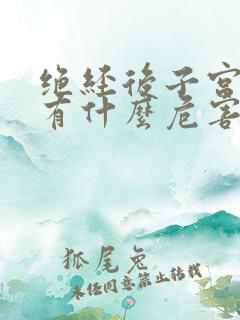 绝经後子宫
有什麽危害
狐尾兔
未经同意禁止转载